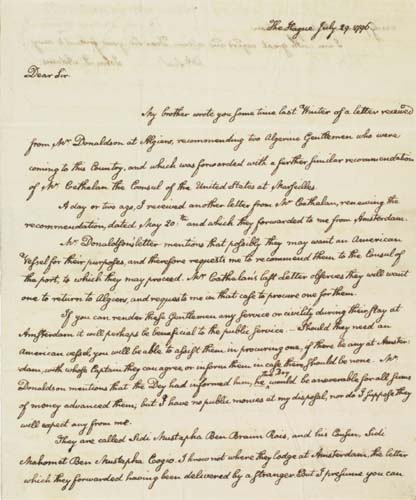 The Hague July 29. 1796
Dear Sir.
My brother wrote you some time last Winter of a letter received
from Mr Donaldson at Algiers, recommending two Algerine Gentlemen who were
coming to this Country, and which was forwarded with a further similar recommendation
of Mr Cathalan the Consul of the United States at Marseilles
A day or two ago, I received another letter from Mr Cathalan, renewing the
recommendation, dated May 20th and which they forwarded to me from Amsterdam.
Mr Donaldson's letter mentions that possibly they may want an American
Vessel for their purposes, and therefore requests me to recommend them to the Consul of
the port, to which they may proceed. Mr Cathalan's last Letter observes they will want
one to return to Algiers, and requests me in that case to procure one for them.
If you can render these Gentlemen any Service or civility during their stay at
Amsterdam, it will perhaps be beneficial to the public Service — Should they need an
American vessel, you will be able to assist them in procuring one, if there be any at Amster:
dam, with whose Captain they can agree or inform them in case there should be none. Mr
Donaldson mentions that the Dey had informed him, he the Dey would be answerable for all sums
of money advanced them, but I have no public monies at my disposal, nor do I suppose they
will expect any from me.
They are called Sidi Mustapha Ben Braim Rais, and his Cousin, Sidi
Mahomet Ben Mustapha Cogio I know not where they lodge at Amsterdam, the letter
which they forwarded having been delivered by a stranger But I presume you can